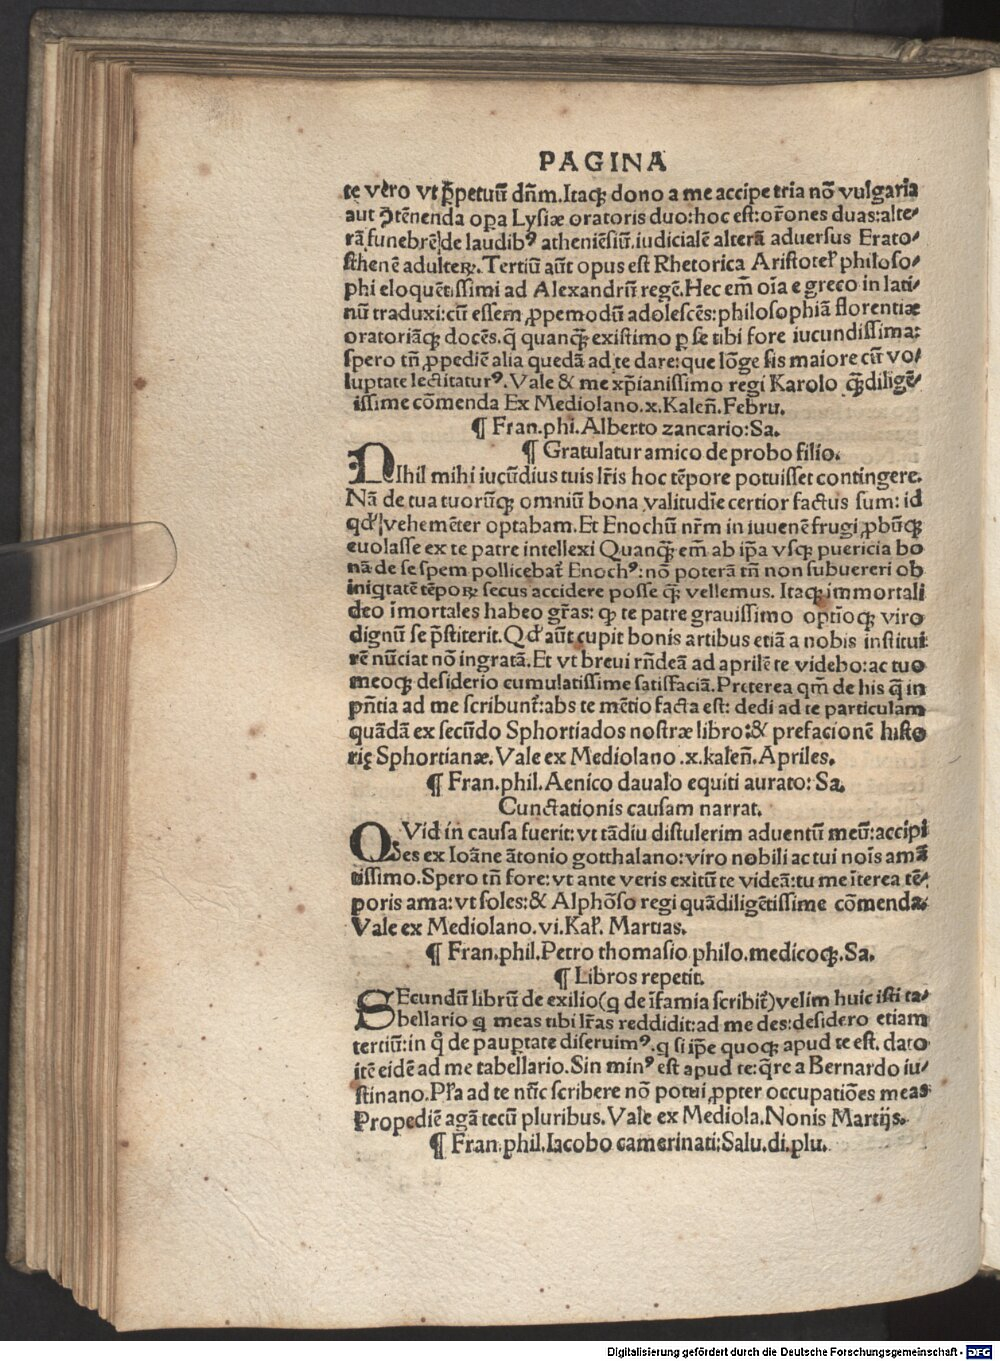 PAGINA
te vero vt ꝑpetuū dn̄m. Itaqꝫ dono a me accipe tria nō vulgaria
aut ꝯtēnenda oꝑa Lysiæ oratoris duo: hoc est: or̄ones duas: alte⸗
rā funebrē de laudibꝰ atheniēsiū. iudicialē alterā aduersus Erato⸗
sthenē adulteꝝ. Tertiū aūt opus est Rhetorica Aristotel̕ philoso⸗
phi eloquētissimi ad Alexandrū regē. Hec em̄ oīa e greco in lati⸗
nū traduxi: cū essem ꝓpemodū adolescēs: philosophiā florentiæ
oratoriāqꝫ docēs. q̄ quanqꝫ̄ existimo ꝑ se tibi fore iucundissima:
spero tn̄ ꝓpediē alia quedā ad te dare: que lōge sis maiore cū vo⸗
luptate lectitaturꝰ. Vale & me xp̄ianissimo regi Karolo qꝫ̄diligē⸗
issime cōmenda Ex Mediolano. x. Kalen̄. Febru.
¶ Fran. phi. Alberto zancario: Sa.
¶ Gratulatur amico de probo filio.
NIhil mihi iucūdius tuis lr̄is hoc tēpore potuisset contingere.
Nā de tua tuorūqꝫ omniū bona valitudīe certior factus sum: id
qd̕ vehemēter optabam. Et Enochū nr̄m in iuuenē frugi ꝓbūqꝫ
euolasse ex te patre intellexi Quanqꝫ̄ em̄ ab ip̄a vsqꝫ puericia bo
nā de se spem pollicebat̄ Enochꝰ: nō poterā tn̄ non subuereri ob
iniqtatē tēpoꝝ secus accidere posse qꝫ̄ vellemus. Itaqꝫ immortali
deo īmortales habeo gr̄as: ꝙ te patre grauissimo optīoqꝫ viro
dignū se p̄stiterit. Qd̕ aūt cupit bonis artibus etiā a nobis institui
rē nūciat nō ingratā. Et vt breui rn̄deā ad aprilē te videbo: ac tuo
meoqꝫ desiderio cumulatissime satisfaciā. Preterea qm̄ de his q̄ in
pn̄tia ad me scribunt̄: abs te mētio facta est: dedi ad te particulam
quādā ex secūdo Sphortiados nostræ libro: & prefacionē histo
rię Sphortianæ. Vale ex Mediolano .x. kalen̄. Apriles.
¶ Fran. phil. Aenico daualo equiti aurato: Sa.
Cunctationis causam narrat.
QVid in causa fuerit: vt tādiu distulerim aduentū meū: accipi
es ex Ioāne ātonio gotthalano: viro nobili ac tui noīs amā
tissimo. Spero tn̄ fore: vt ante veris exitū te videā: tu me īterea tē⸗
poris ama: vt soles: & Alphōso regi quādiligētissime cōmenda.
Vale ex Mediolano. vi. Kal̕. Martias.
¶ Fran. phil. Petro thomasio philo. medicoqꝫ. Sa.
¶ Libros repetit.
SEcundū librū de exilio (q̄ de īfamia scribit̄) velim huic isti ta⸗
bellario q̄ meas tibi lr̄as reddidit: ad me des: desidero etiam
tertiū: in q̊ de pauꝑtate diseruimꝰ. q̄ si ip̄e quoqꝫ apud te est. dato
itē eidē ad me tabellario. Sin minꝰ est apud te: q̄re a Bernardo iu⸗
stinano. Pl̄a ad te nūc scribere nō potui ꝓpter occupatiōes meas
Propediē agā tecū pluribus. Vale ex Mediola. Nonis Martijs.
¶ Fran. phil. Iacobo camerinati: Salu. di. plu.
Digitalisierung gefördert durch die Deutsche Forschungsgemeinschaft - DFG